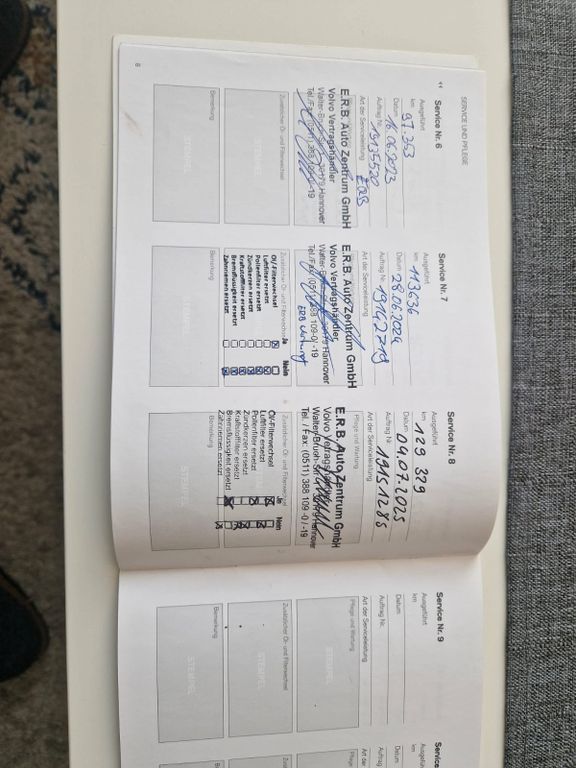 SERVICE UND PFLEGE
Service Nr. 6
Ausgeführt
km 97.353
Datum 16.06.2023
Auftrag Nr. 19135520
Art der Serviceleistung
E.R.B. Auto Zentrum GmbH
Volvo Vertragshändler
Hannover
Tel./Fax: (0511) 388 109-0/ -19
Zusätzlicher Öl- und Filterwechsel
STEMPEL
Bemerkung
STEMPEL
8
Service Nr. 7
Ausgeführt
km 113636
Datum 28.06.2024
Auftrag Nr. 19142719
Art der Serviceleistung
E.R.B. Auto Zentrum GmbH
Volvo Vertragshändler
Hannover
Tel./Fax: (0511) 388 109-0/ -19
Zusätzlicher Öl- und Filterwechsel
Ja Nein
Öl/-Filterwechsel
Luftfilter ersetzt
Pollenfilter ersetzt
Zündkerzen ersetzt
Kraftstofffilter ersetzt
Bremsflüssigkeit ersetzt
Zahnriemen ersetzt
Bemerkung
STEMPEL
Service Nr. 8
Ausgeführt
km 129 329
Datum 04.07.2025
Auftrag Nr. 19151285
Art der Serviceleistung
Pflege und Wartung
E.R.B. Auto Zentrum GmbH
Volvo Vertragshändler
Hannover
Tel. / Fax: (0511) 388 109 -0 / -19
Zusätzlicher Öl- und Filterwechsel
Ja Nein
Öl/-Filterwechsel
Luftfilter ersetzt
Pollenfilter ersetzt
Zündkerzen ersetzt
Kraftstofffilter ersetzt
Bremsflüssigkeit ersetzt
Zahnriemen ersetzt
Bemerkung
STEMPEL
Service Nr. 9
Ausgeführt
km
Datum
Auftrag Nr.
Art der Serviceleistung
Pflege und Wartung
STEMPEL
Zusätzlicher Öl- und Filterwechsel
STEMPEL
Bemerkung
STEMPEL
Service
Ausgeführt
km
Datum
Auftrag Nr.
Art der
Pflege